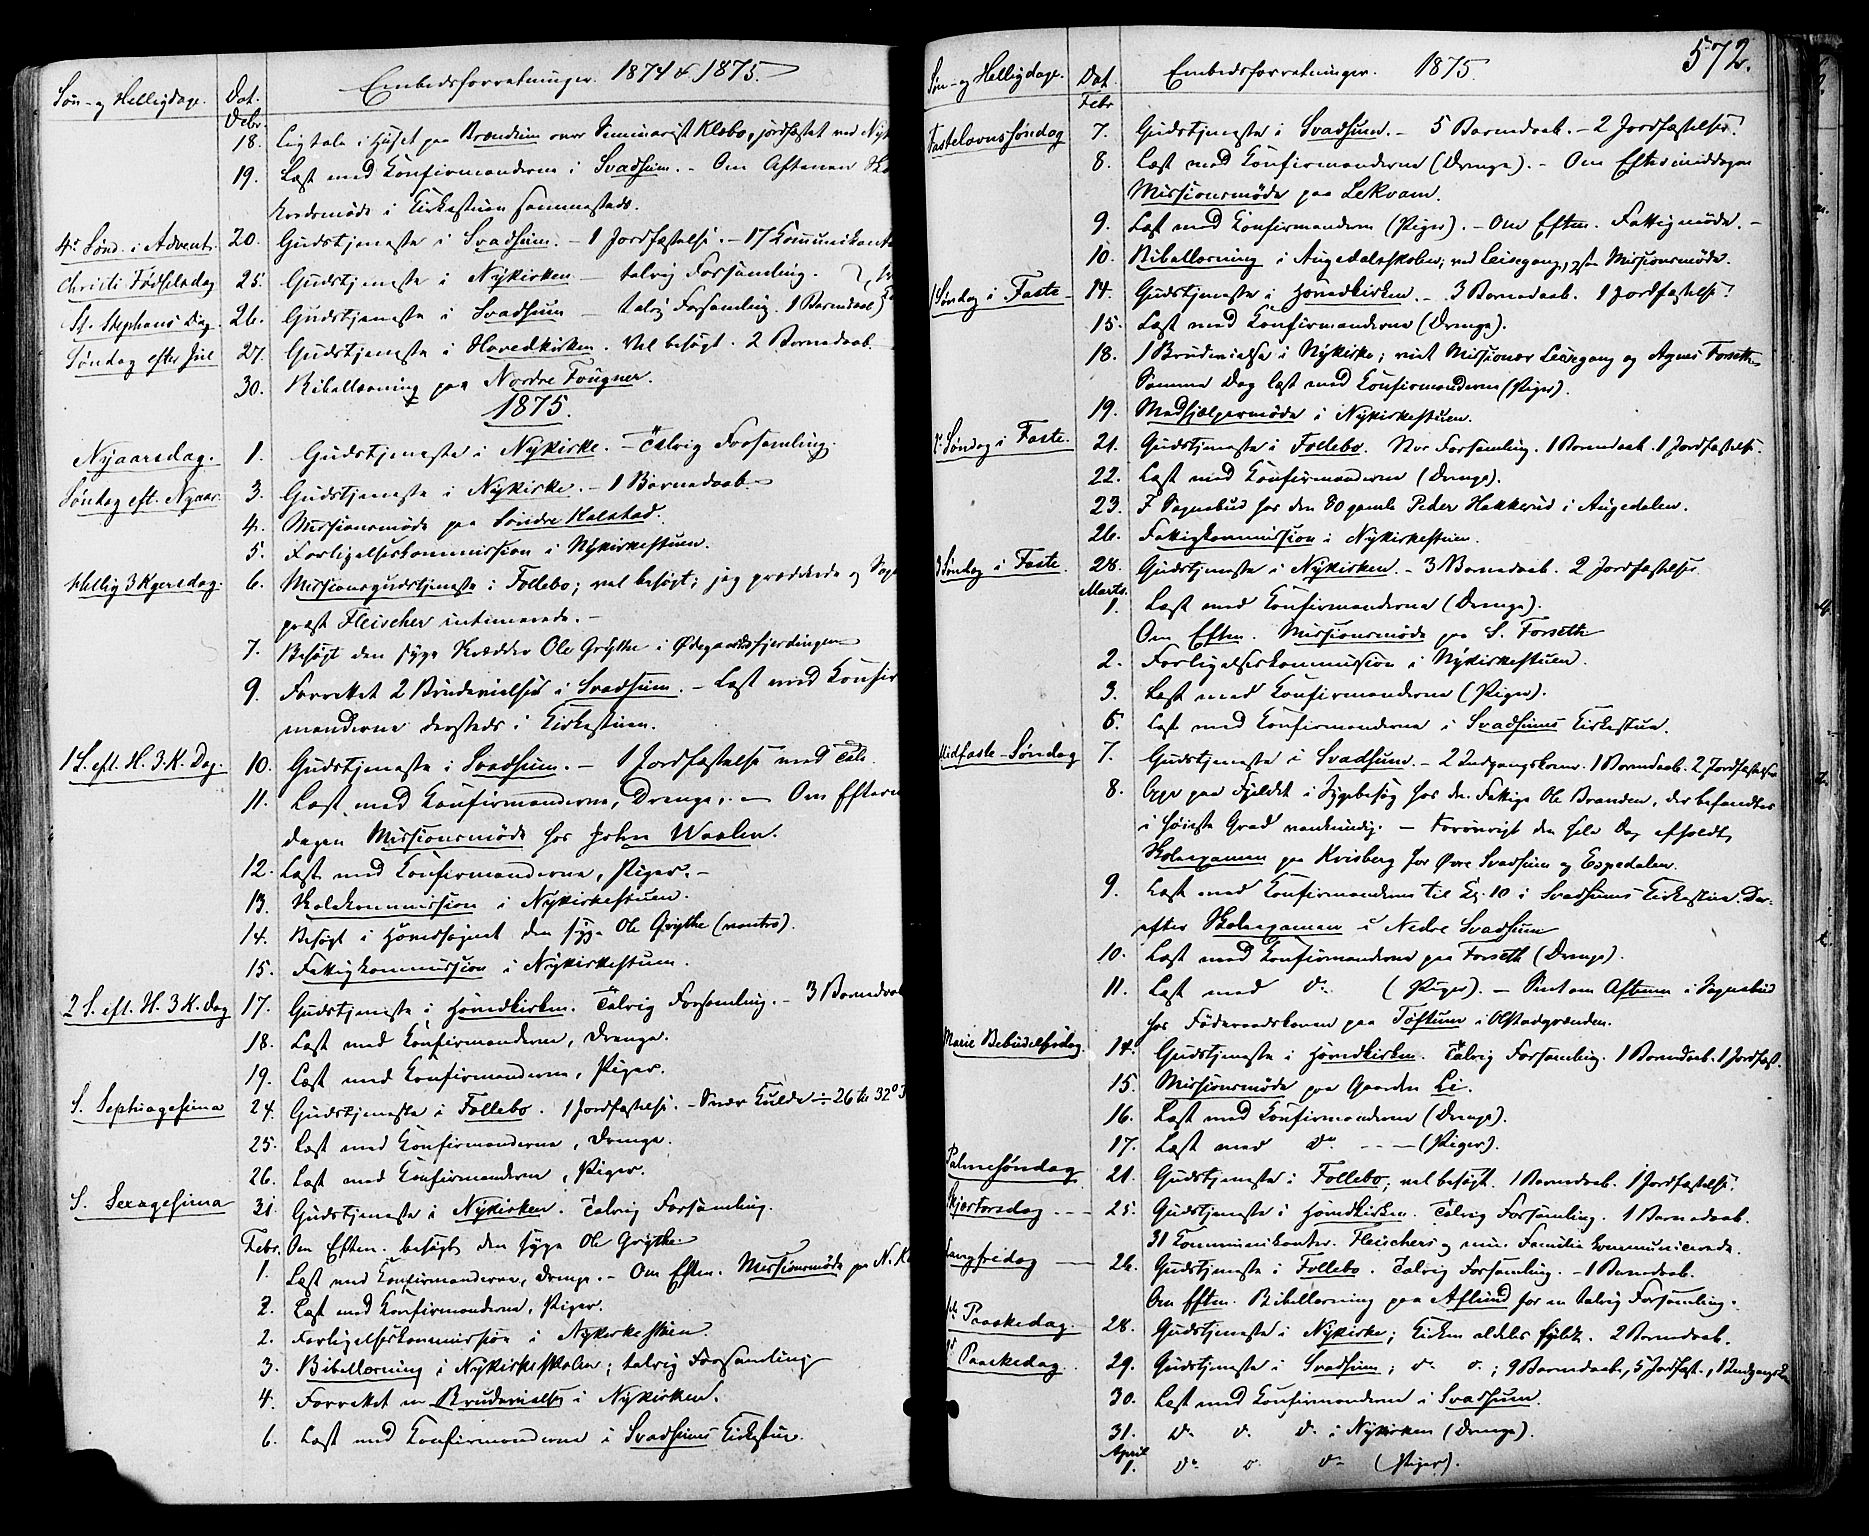 Søn- og Helligdage. Dat. Embedsforretninger. 1874 & 1875.
Debr.
18. Ligtale i Huset paa Brændum over Seminarist Klæbo, jordfæstet ved Nyk
19. Læst med Konfirmanderne i Svadsum. - Om Aftenen
kredsmøde i Kirkestuen sammesteds.
4de Sønd. i Advent. 20. Gudstjeneste i Svadsum. - 1 Jordfæstelse. - 17 Kommunikanter
Christi Fødselsdag 25. Gudstjeneste i Nykirken - talrig Forsamling.
St. Stephans Dag. 26. Gudstjeneste i Svadsum - talrig Forsamling. 1 Barnedaab
Søndag efter Jul 27. Gudstjeneste i Hovedkirken. Vel besøgt. 2 Barnedaab.
30. Bibellæsning paa Nordre Fougner.
1875.
Nyaarsdag. 1. Gudstjeneste i Nykirke. - Talrig Forsamling.
Søndag eft. Nyaar. 3. Gudstjeneste i Nykirke. - 1 Barnedaab. -
4. Missionsmøde paa Søndre Kalstad.
5. Forligelseskommission i Nykirkestuen.
Hellig 3 Kgersdag. 6. Missionsgudstjeneste i Follebo; vel besøgt; jeg prædikede og Sogne
præst Fleischer intimerede. -
7. Besøgt den syge Skrædder Ole Grytte i Ødegaardsfjerdingen
9. Forrettet 2 Brudevielser i Svadsum. - Læst med Konfir
manderne dersteds i Kirkestuen.
1 S. eft. H. 3. K. Dag. 10. Gudstjeneste i Svadsum. - 1 Jordfæstelse med Tale.
11. Læst med Konfirmanderne, Drenge. - Om Efterm
dagen Missionsmøde hos John Waalen.
12. Læst med Konfirmanderne, Piger. -
13. Skolekommission i Nykirkestuen.
14. Besøgt i Hovedsognet den syge Ole Grytte
15. Fattigkommission i Nykirkestuen.
2 S. eft. H. 3 K. Dag 17. Gudstjeneste i Hovedkirken. Talrig Forsamling. - 3 Barnedaab
18. Læst med Konfirmanderne, Drenge.
19. Læst med Konfirmanderne, Piger.
S. Septuagesima 24. Gudstjeneste i Follebo. 1 Jordfæstelse. - Svær Kulde ÷ 26 til 32°
25. Læst med Konfirmanderne, Drenge.
26. Læst med Konfirmanderne, Piger.
S. Sexagesima 31. Gudstjeneste i Nykirken. Talrig Forsamling.
Febr. Om Eftm. besøgt den syge Ole Grytte.
1. Læst med Konfirmanderne, Drenge. - Om Eftm. Missionsmøde paa N.
2. Læst med Konfirmanderne, Piger.
2. Forligelseskommission i Nykirkestuen.
3. Bibellæsning i Nykirkeskolen; talrig Forsamling
4. Forrettet en Brudevielse i Nykirken.
6. Læst med Konfirmanderne i Svadsums Kirkestue.
572.
Søn- og Helligdage. Dat. Embedsforretninger. 1875.
Febr
Fastelavnssøndag 7. Gudstjeneste i Svadsum. - 5 Barnedaab. - 2 Jordfæstelser.
8. Læst med Konfirmanderne (Drenge). - Om Eftermiddagen
Missionsmøde paa Lekvam.
9. Læst med Konfirmanderne (Piger). - Om Eftm. Fattigmøde. -
10. Bibellæsning i Augedalsskolen; ved Leirgang, Missionsmøde.
1 Søndag i Faste - 14. Gudstjeneste i Hovedkirken. - 3 Barnedaab. 1 Jordfæstelse.
15. Læst med Konfirmanderne (Drenge).
18. 1 Brudevielse i Nykirke; viet Missionær Leirgang og Agnes Forseth
Samme Dag læst med Konfirmanderne (Piger).
19. Medhjælpermøde i Nykirkestuen.
2. Søndag i Faste. 21. Gudstjeneste i Follebo. Stor Forsamling. 1 Barnedaab. 1 Jordfæstelse.
22. Læst med Konfirmanderne (Drenge).
23. I Sognebud hos den 80 gamle Peder Hakkerud i Augedalen.
26. Fattigkommission i Nykirkestuen.
3 Søndag i Faste. 28. Gudstjeneste i Nykirken. - 3 Barnedaab. 2 Jordfæstelser
Marts.
1. Læst med Konfirmanderne (Drenge).
Om Eftm. Missionsmøde paa S. Forseth
2. Forligelseskommission i Nykirkestuen.
3. Læst med Konfirmanderne (Piger).
5. Læst med Konfirmanderne i Svadsums Kirkestue.
Midfaste-Søndag 7. Gudstjeneste i Svadsum. - 2 Indgangskoner. 1 Barnedaab. 2 Jordfæstelser
8. Oppe paa Fjeldet i Sygebesøg hos den Fattige Ole Branden, der befandtes
i høieste Grad vankundig. - Forøvrigt den hele Dag afholdt
Skoleexamen paa Kvisberg for Øvre Svadsum og Espedalen.
9. Læst med Konfirmanderne til Kl. 10 i Svadsums Kirkestue. Der-
efter Skoleexamen i Nedre Svadsum
10. Læst med Konfirmanderne paa Forseth (Drenge).
11. Læst med Do (Piger). - Sent om Aftenen i Sognebud
hos Føderaadskonen paa Toftum i Olstadgrænden.
Mariæ Bebudelsesdag. 14. Gudstjeneste i Hovedkirken. Talrig Forsamling. 1 Barnedaab. 1 Jordfæst.
15. Missionsmøde paa Gaarden Li.
16. Læst med Konfirmanderne (Drenge).
17. Læst med Do - - - (Piger).
Palmesøndag 21. Gudstjeneste i Follebo; vel besøgt. 1 Barnedaab. 1 Jordfæstelse.
Skjærtorsdag - - - 25. Gudstjeneste i Hovedkirken. Talrig Forsamling. 1 Barnedaab.
31 Kommunikanter. Fleischers og min Familie kommunicerede.
Langfredag - - 26. Gudstjeneste i Follebo. Talrig Forsamling. - 1 Barnedaab.
Om Eftm. Bibellæsning paa Aslund for en talrig Forsamling.
1ste Paaskedag. 28. Gudstjeneste i Nykirke; Kirken aldeles fyldt. 2 Barnedaab.
Paaskedag. 29. Gudstjeneste i Svadsum; do do; 9 Barnedaab, 5 Jordfæst., 1 Indgangsk
30. Læst med Konfirmanderne i Svadsum.
31. Do Do Do i Nykirken (Drenge).
April
1. Do Do Do (Piger).